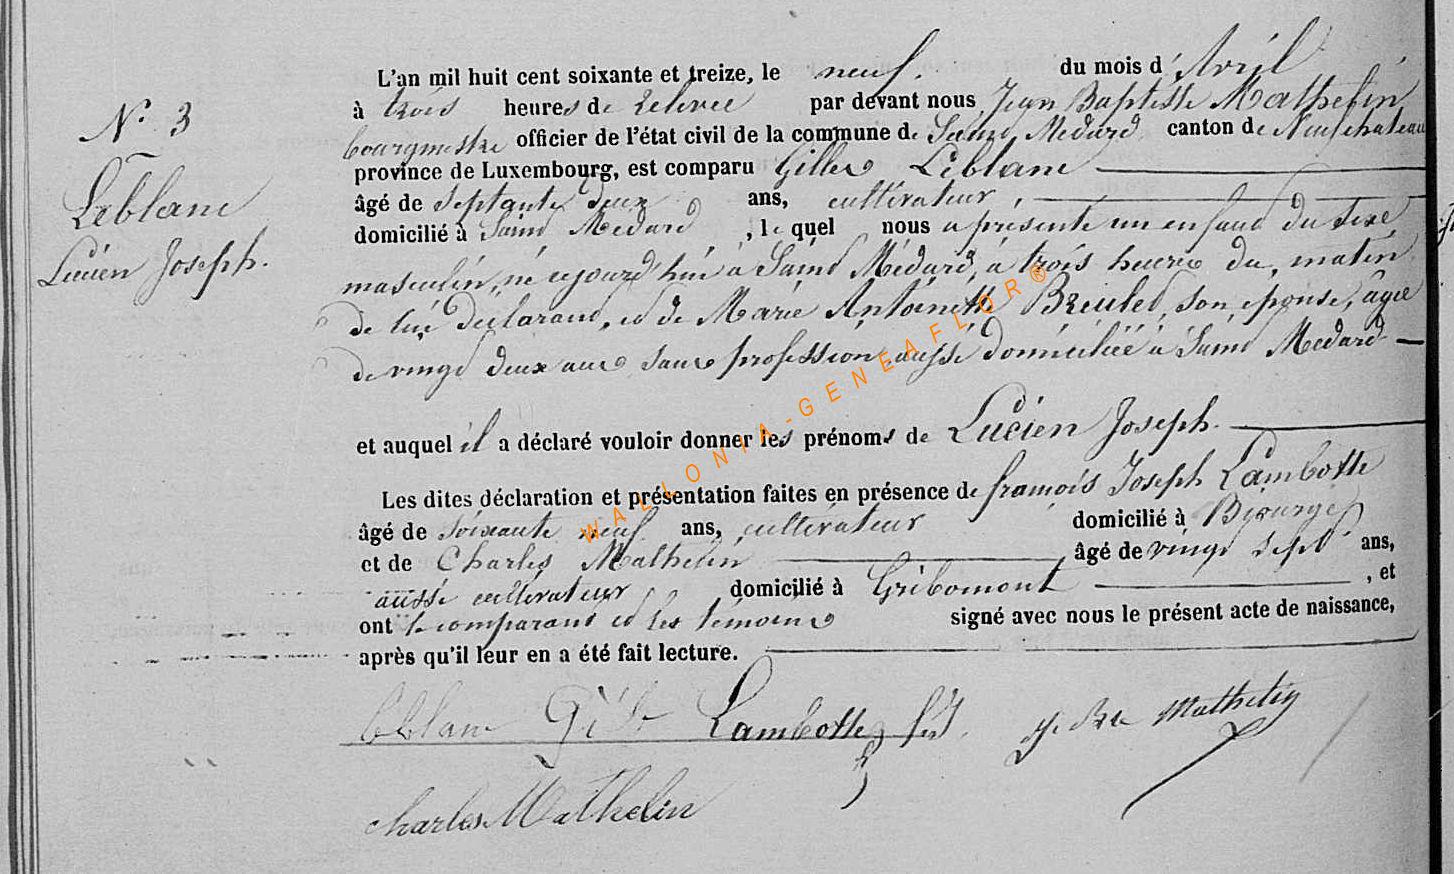 N° 3
Leblanc
Lucien Joseph.
L'an mil huit cent soixante et treize, le neuf. du mois d'Avril
à trois heures de relevée par devant nous Jean Baptiste Mathelin,
bourgmestre officier de l'état civil de la commune de Saint Médard canton de Neufchateau
province de Luxembourg, est comparu Gilles Leblanc
âgé de septante deux ans, cultivateur,
domicilié à Saint Médard, le quel nous a présenté un enfant du sexe
masculin, né aujourd'hui à Saint Médard, à trois heures du matin
de lui déclarant, et de Marie Antoinette Breulet, son épouse, agée
de vingt deux ans sans profession aussi domiciliée à Saint Médard
et auquel il a déclaré vouloir donner les prénoms de Lucien Joseph.
Les dites déclaration et présentation faites en présence de françois Joseph Lambotte
âgé de soixante neuf ans, cultivateur domicilié à
et de Charles Mathelin âgé de vingt sept ans,
aussi cultivateur domicilié à Gribomont, et
ont le comparant et les témoins signé avec nous le présent acte de naissance,
après qu'il leur en a été fait lecture.
leblanc Lambotte Mathelin
charles Mathelin
WALLONIA-GENEAFLOR®